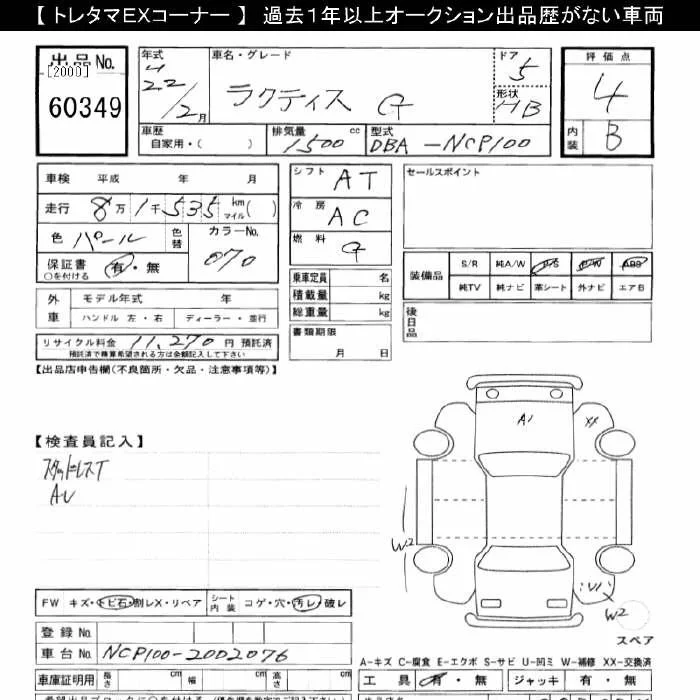 【 トレタマEXコーナー 】 過去1年以上オークション出品歴がない車両
出品No.
[2000]
60349
年式 22/2月
車名・グレード ラクティス G
ドア 5
形状 HB
車歴 自家用・( )
排気量 1500 cc
型式 DBA-NCP100
評価点 4
内装 B
車検 平成 年 月
走行 8万1千535 km マイル( )
色 パール 色替 カラーNo. 070
保証書 有・無
○を付ける
外車 モデル年式 年
ハンドル 左・右 ディーラー・並行
リサイクル料金 11,270 円 預託済
預託済で精算希望される方は金額記入して下さい
シフト AT
冷房 AC
燃料 G
乗車定員 名
積載量 kg
総重量 kg
書類期限
月 日
セールスポイント
装備品 S/R 純A/W P/S P/W ABS
純TV 純ナビ 革シート 外ナビ エアB
後日品
【出品店申告欄(不良箇所・欠品・注意事項等)】
【検査員記入】
スタッドレスT
AU
A1
XX
W2
W2
FW キズ・トビ石・割レX・リペア シート内装 コゲ・穴・汚レ・破レ
登録No.
車台No. NCP100-2002076
車庫証明用 長さ cm 幅 cm 高さ cm
スペア
A-キズ C-腐食 E-エクボ S-サビ U-凹ミ W-補修 XX-交換済
工具 有・無 ジャッキ 有・無